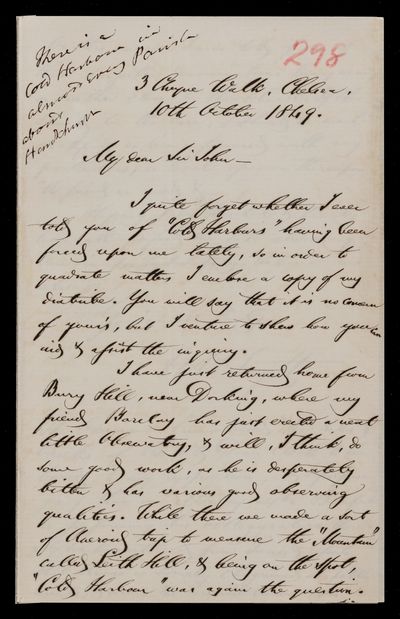 There is a
Cold Harbour in
almost every Parish
about
Hawkhurst
298
3 Cheyne Walk, Chelsea,
10th October 1849.
My dear Sir John —
I quite forget whether I ever
told you of "Cold Harbours" having been
forced upon me lately, so in order to
quadrate matters I enclose a copy of my
diatribe. You will say that it is no concern
of your's, but I venture to shew how you can
aid & assist the inquiry.
I have just returned home from
Bury Hill, near Dorking, where my
friend Barclay has just erected a neat
little Observatory, & will, I think, do
some good work, as he is desperately
bitten & has various good observing
qualities. While there we made a sort
of Aneroid trip to measure the "Mountain"
called Leith Hill, & being on the spot,
"Cold Harbour" was again the question.